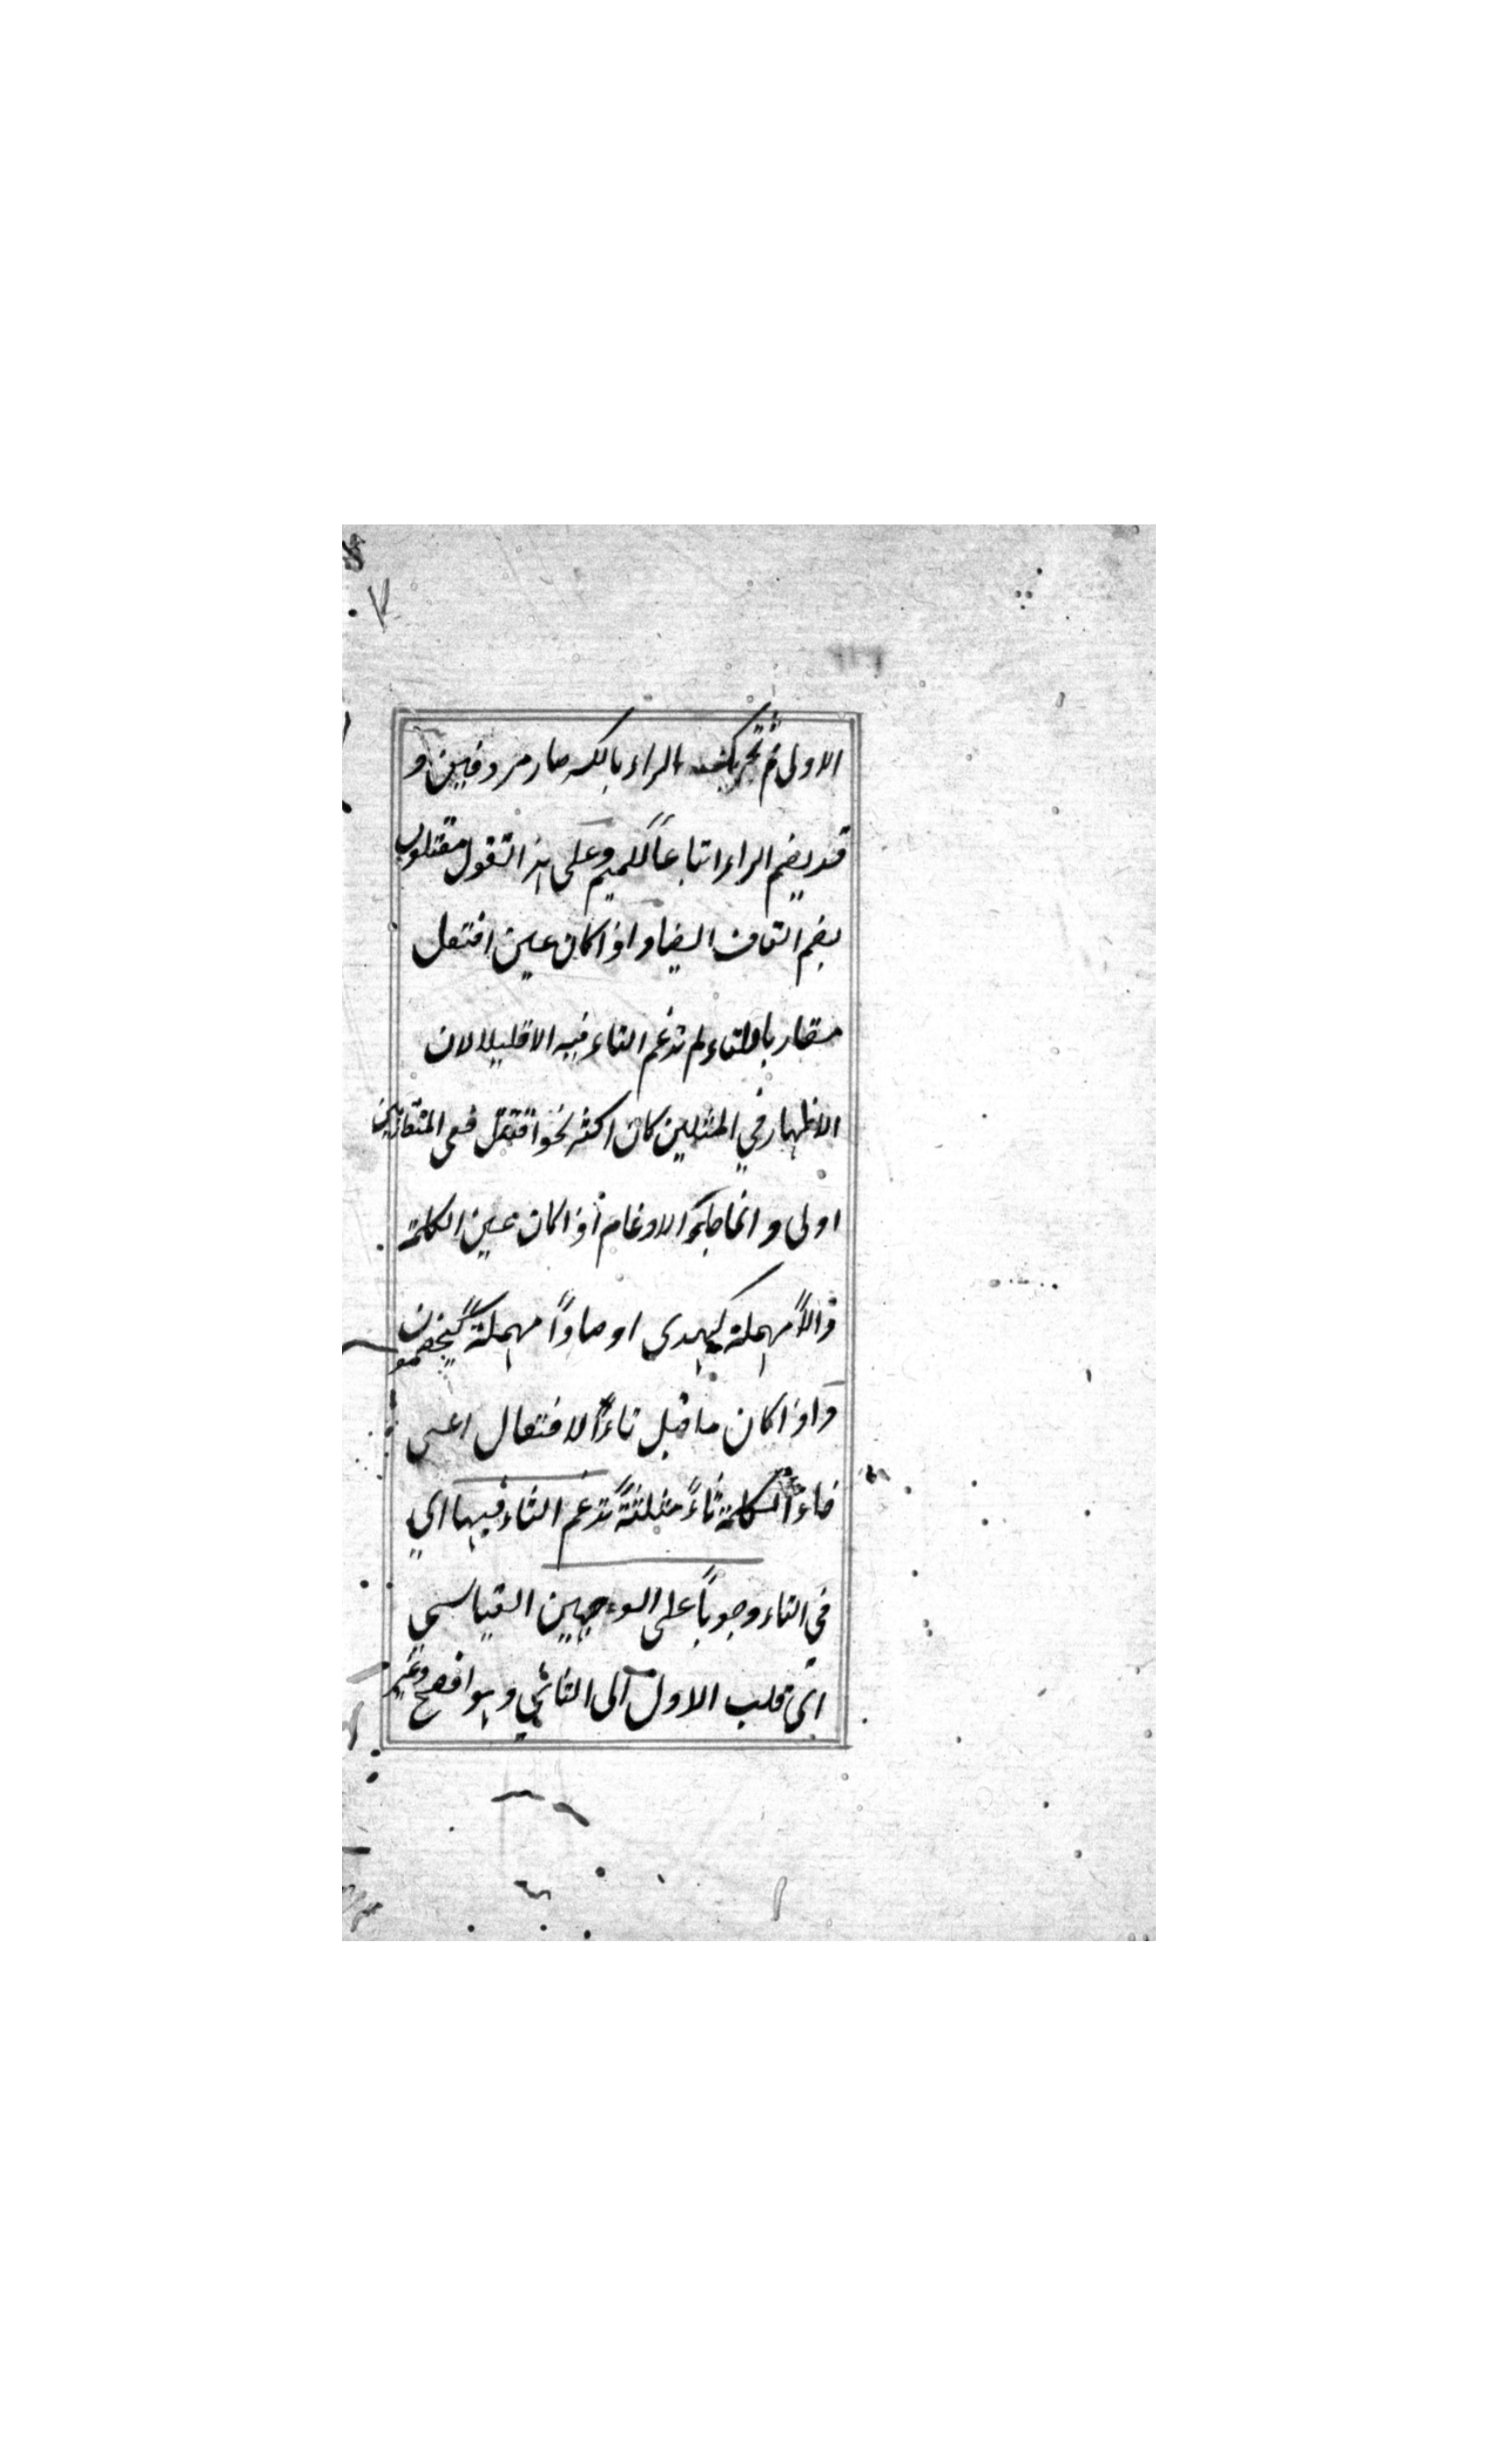 الاولى ثم تحركت الراء بالكسر صار مردفين و
قد يضم الراء اتباعاً للميم وعلى هذا تقول مقتلون
بضم القاف ايضا واذا كان عين افتعل
مقاربا للتاء لم تدغم التاء فيه الا قليلا لان
الاظهار في المثلين كان اكثر نحو اقتتل ففي المتقاربين
اولى وانما جاء الادغام اذا كان عين الكلمة
دالاً مهملة كيهدى او صاداً مهملة كيخصمون
واذا كان ما قبل تاء الافتعال اعنى
فاء الكلمة ثاءً مثلثةً تدغم الثاء فيها اي
في التاء وجوباً على الوجهين القياسي
اى قلب الاول الى الثاني وهو افصح وغير